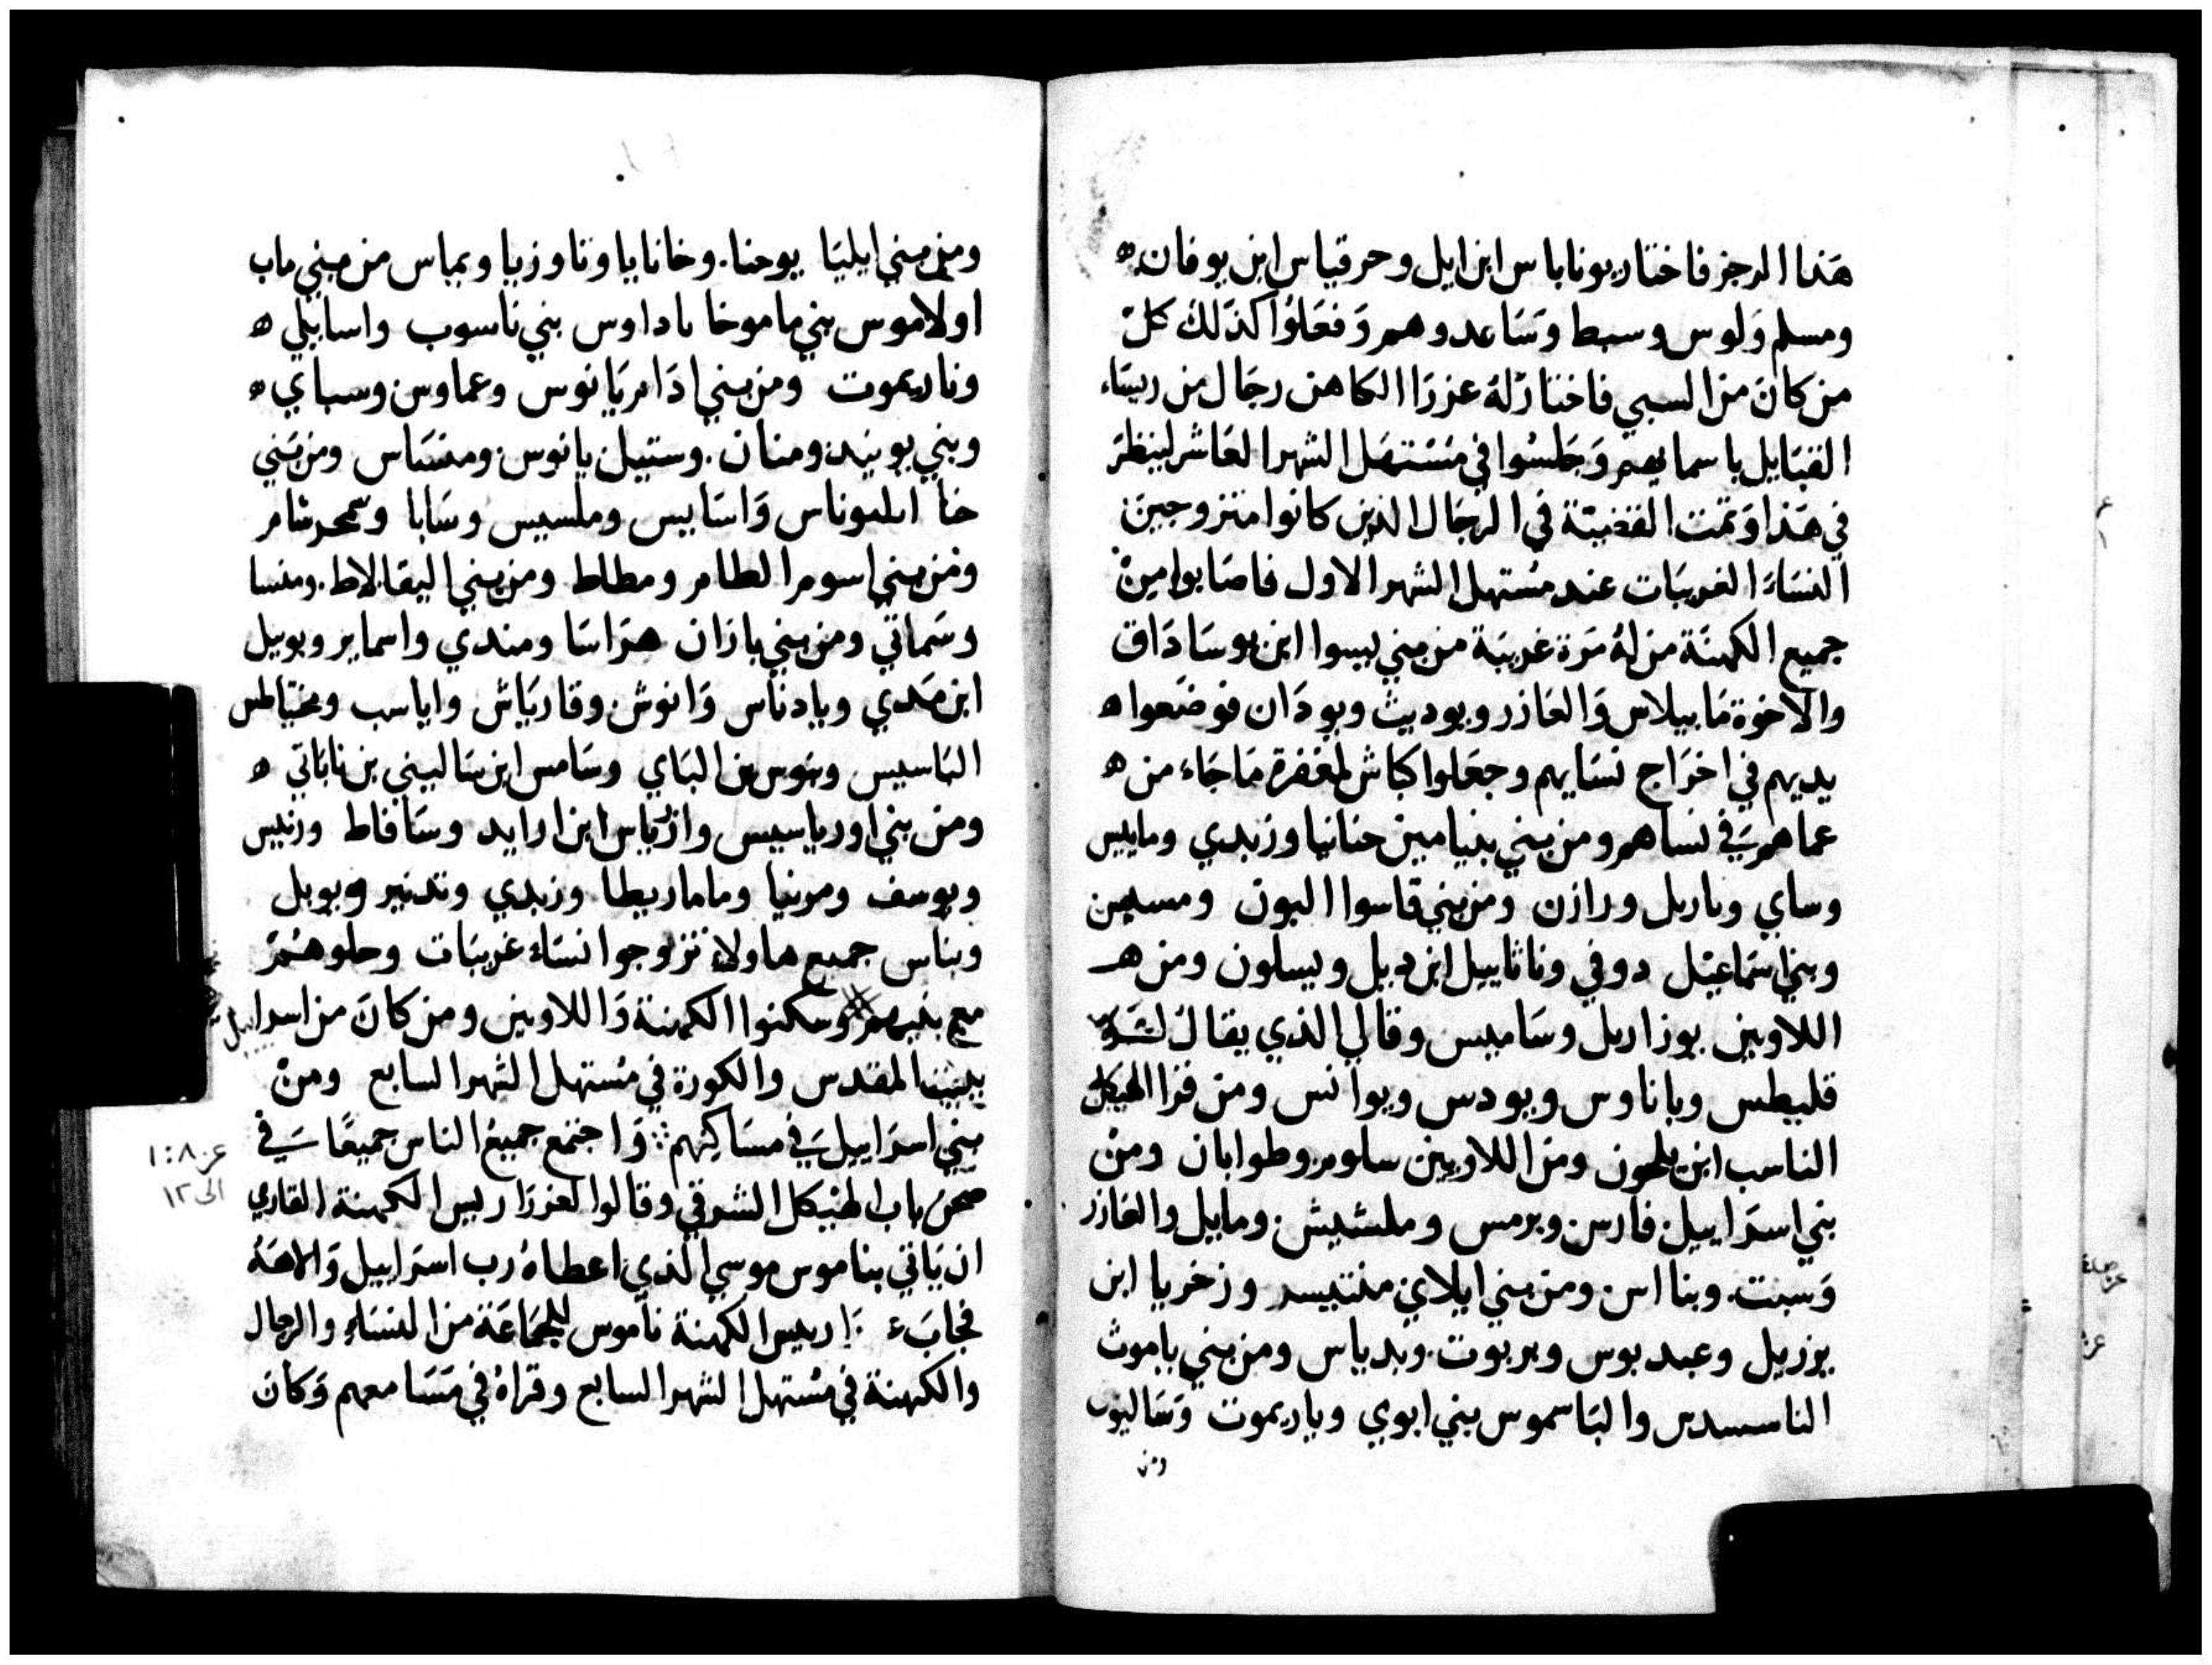 هذا الرجز فاختار يوناباس ابن ايل وحرقياس ابن يوفان ه
ومسلم ولوس وسبط وتساعدوهم وفعلوا كذلك كل
من كان من السبي فاختار له عزرا الكاهن رجال من ريساء
القبايل باسمايهم وجلسوا في مستهل الشهر العاشر لينظر
في هذا وتمت القضية في الرجال الذين كانوا متزوجين
النساء الغريبات عند مستهل الشهر الاول فاصابوا من
جميع الكهنة من له مرة غريبة من بني يسوا ابن يوساداق
والاخوة مابيلاس والعازر ويوديث ويودان فوضعوا ه
يديهم في اخراج نسايهم وجعلوا كباش لمغفرة ما جاء من ه
عماهم في نساهم ومن بني بنيامين حنانيا وزبدي ومابيس
وساي وباريل ورازن ومن بني قاسوا اليون ومسيس
وبني اسماعيل دوفي وناثاييل ابن دبل ويسلون ومن هـ
اللاويين يوزاريل وساميس وقالي الذي يقال
قليطس وباناوس ويودس ويوانس ومن قرا الهيكل
الناسب ابن يلحون ومن اللاويين سلوم وطوابان ومن
بني اسراييل فارس ويرمس وملشيش ومابيل والعازر
وسبت وبنااس ومن بني ايلاي منتيسر وزخريا ابن
يزريل وعبد يوس ويريوت وبدياس ومن بني ياموث
الناسيدس والياسموس بني ابوي وياريموت وساليوس
ومن
ومن بني ايليا يوحنا وخانايا وناوزيا ويماس من بني ماب
اولاموس بني ماموخا باداوس بني ناسوب واساييلي ه
وناريموت ومن بني ادامريانوس وعماوس وسباي ه
وبني يونيد ومنان وستيل يانوس ومنساس ومن بني
حنا ايليوناس واسابيس وملسيس وسابا وسمحرشامر
ومن بني اسوم الطامر ومطاط ومن بني اليفالاط ومنسا
وسماتي ومن بني بازان هراسا ومندي واسماير ويويل
ابن مدي وبادناس وانوش وقارياش واياسب ومخياطس
الياسيس وبنوس بن الباي وسامس ابن ساليبني بن ناباتي ه
ومن بني اورياسيس وازرياس ابن ارايد وسافاط وزبيس
ويوسف ومونيا وماماريطا وزبدي وتدنير ويوبل
وبناس جميع هاولاء تزوجوا نساء غريبات وحلوهم
مع بنيهم وسكنوا الكهنة واللاويين ومن كان من اسراييل
ببيت المقدس والكورة في مستهل الشهر السابع ومن
بني اسراييل في مساكنهم واجتمع جميع الناس جميعا في
صحن باب الهيكل الشرقي وقالوا لعزرا ريس الكهنة القاري
ان ياتي بناموس موسي الذي اعطاه رب اسراييل والاهه
فجاب ريس الكهنة ناموس للجماعة من النساء والرجال
والكهنة في مستهل الشهر السابع وقراه في مسامعهم وكان
عز ٨ : ١
الى ١٢